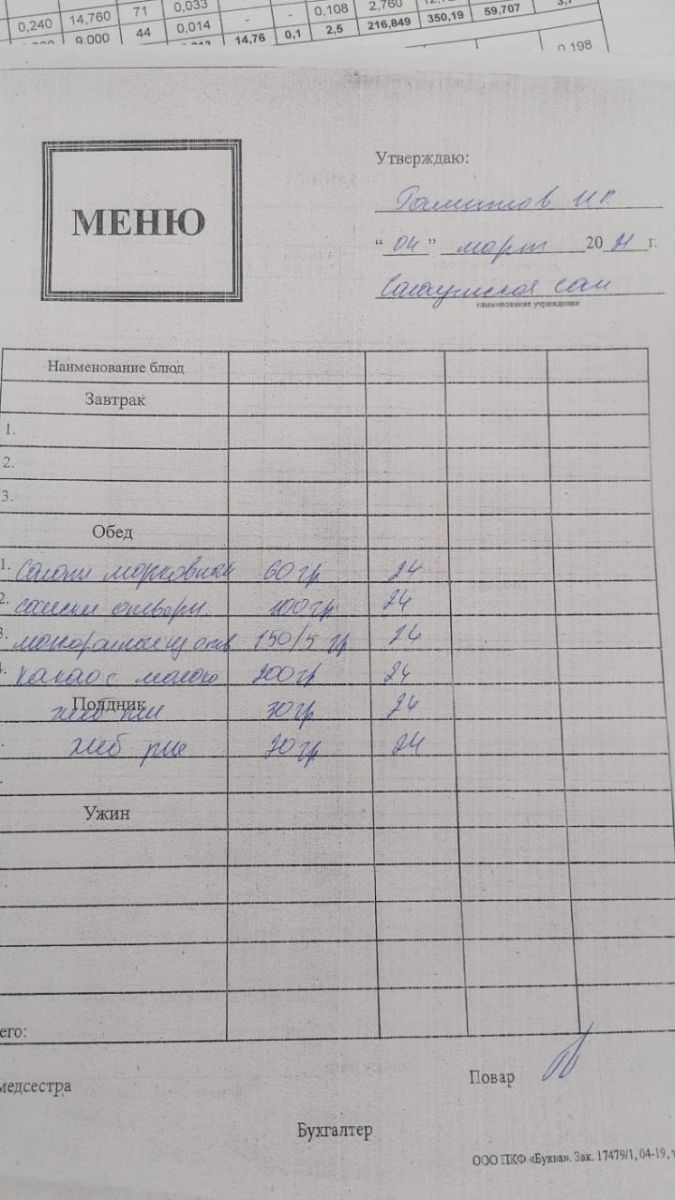 0,240 14,760 71 0,033 - - 0,108 2,760
9,000 44 0,014 14,76 0,1 2,5 216,849 350,19 59,707
0,198
Утверждаю:
МЕНЮ
"04" март 2021 г.
наименование учреждения
Наименование блюд
Завтрак
1.
2.
3.
Обед
1. Салат морковный 60гр 24
2. 100гр 24
3. 150/5 гр 24
4. какао с молоко 200гр 24
Полдник
хлеб пш 30гр 24
хлеб рж 20гр 24
Ужин
его:
медсестра
Повар
Бухгалтер
ООО ПКФ «Буква». Зак. 17479/1, 04-19, т